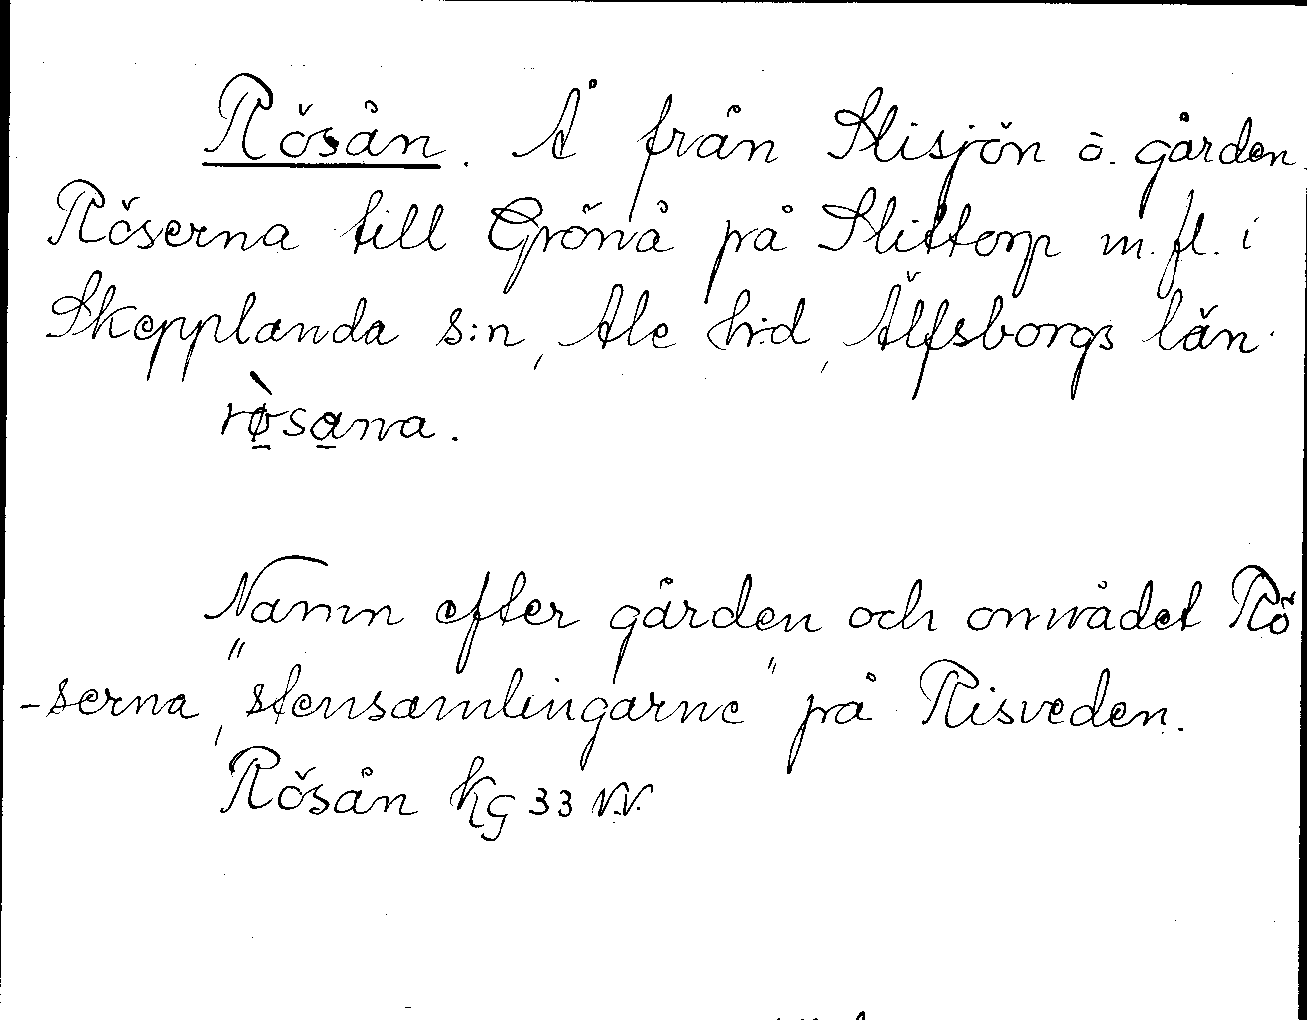 Rösån. Å från Slisjön ö. gården
Röserna till Grönå på Slittorp m.fl. i
Skepplanda s:n, Ale h:d, Älfsborgs län.
rø̀sana.
Namn efter gården och området Rö
-serna, "stensamlingarne" på Risveden.
Rösån KG 33 NV.